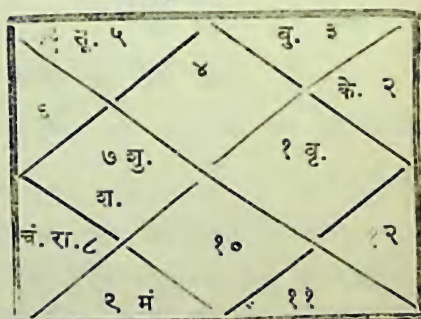 सू. ५
बु. ३
४
के. २
६
७ शु.
१ वृ.
श.
चं. रा. ८
१०
१२
९ मं
११